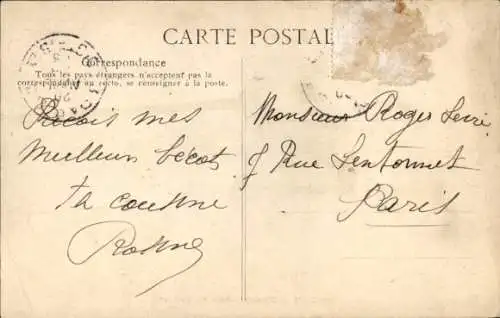 CARTE POSTALE
Correspondance
Tous les pays étrangers n'acceptent pas la
correspondance au recto, se renseigner à la poste.
Reçois mes
meilleurs bécots
ta cousine
Monsieur Roger
Rue Lentonnet
Paris